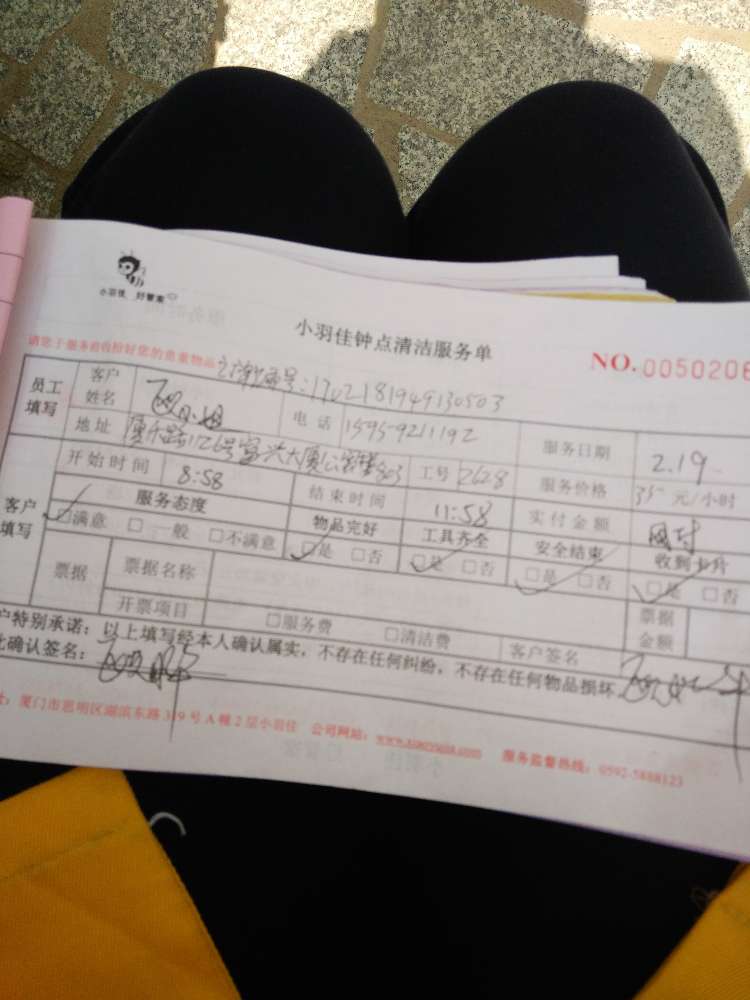 小羽佳 好管家
小羽佳钟点清洁服务单
NO. 0050208
请您于服务前收拾好您的贵重物品 订单编号:1702181949130503
员工填写 客户姓名 小姐 电话 1595-9211192 服务日期 2.19
地址 厦禾路1126号富兴大厦公寓楼803 工号 2628 服务价格 35 元/小时
开始时间 8:58 结束时间 11:58 实付金额 网付
客户填写 服务态度 物品完好 工具齐全 安全结束 收到卡片
☑满意 □一般 □不满意 ☑是 □否 ☑是 □否 ☑是 □否 ☑是 □否
票据 票据名称 票据金额
开票项目 □服务费 □清洁费 客户签名
户特别承诺:以上填写经本人确认属实,不存在任何纠纷,不存在任何物品损坏
此确认签名:
址:厦门市思明区湖滨东路319号A幢2层小羽佳 公司网站: 服务监督热线:0592-5888123